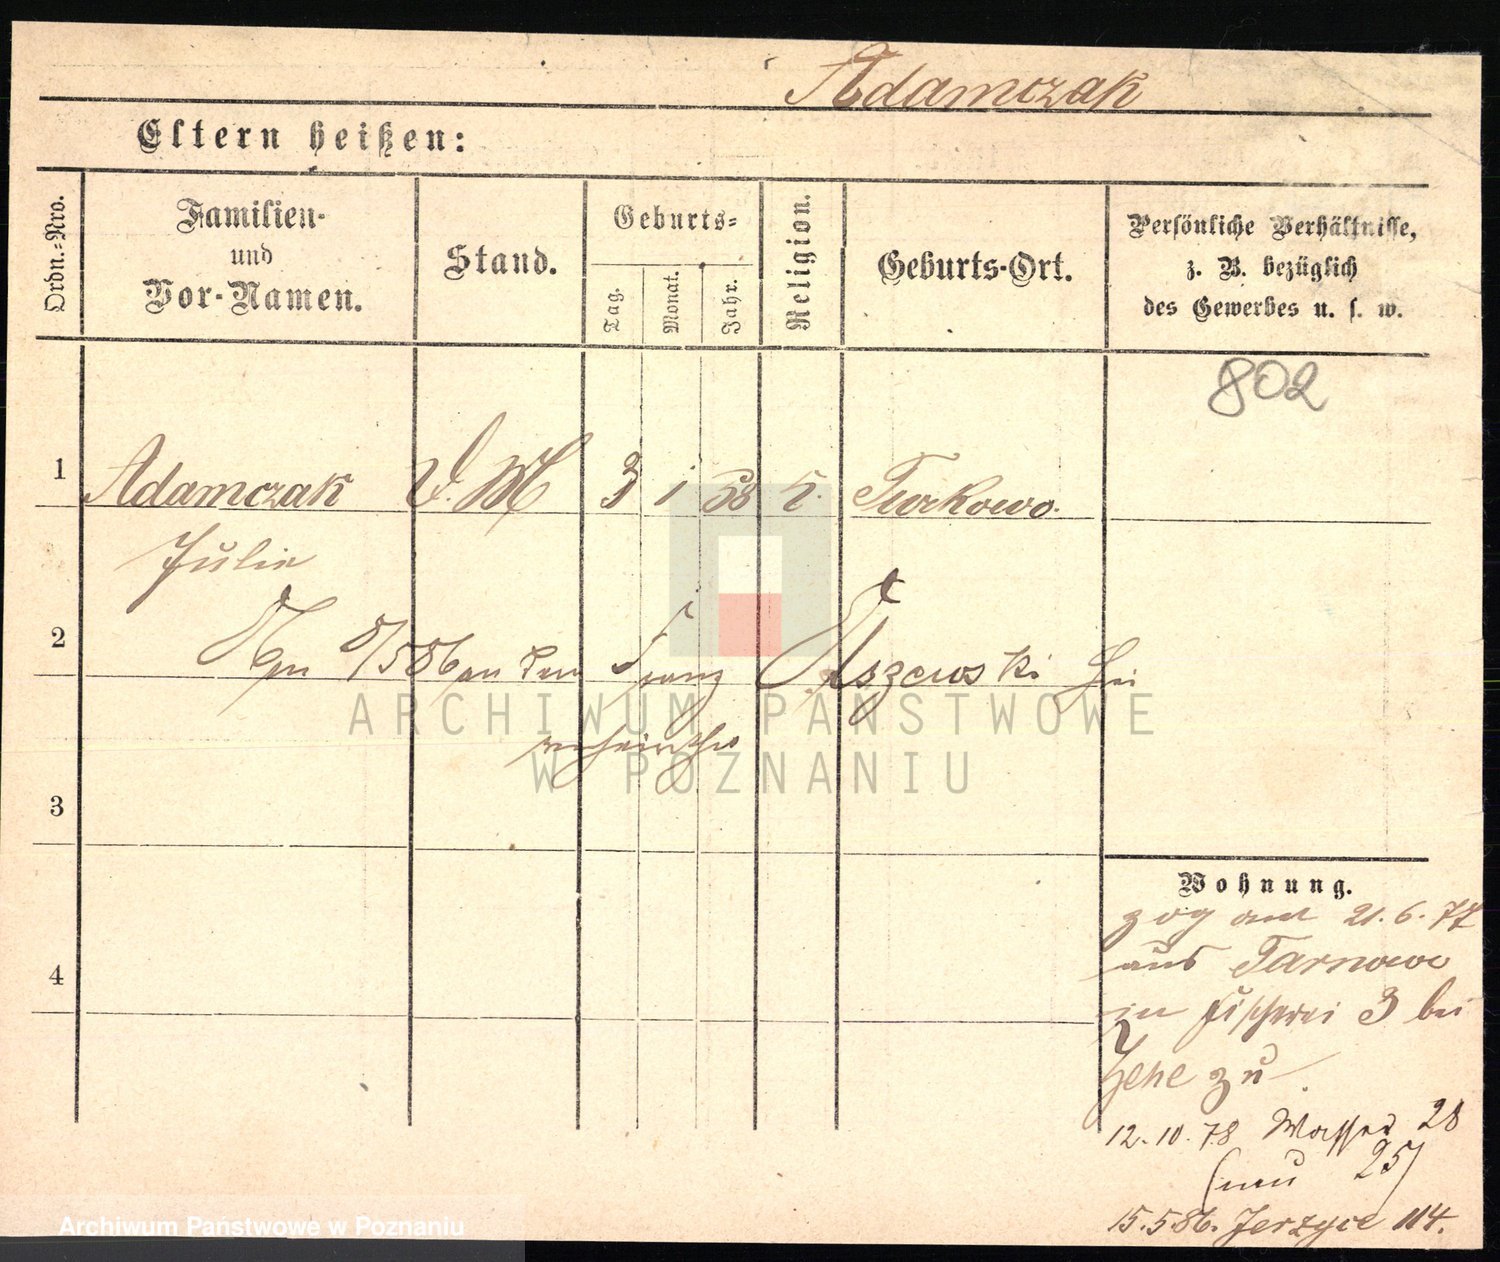 Adamczak
Eltern heißen:
Ordn.=Nro.
Familien-
und
Vor-Namen.
Stand.
Geburts=
Tag.
Monat.
Jahr.
Religion.
Geburts-Ort.
Persönliche Verhältnisse,
z. B. bezüglich
des Gewerbes u. s. w.
802
1 Adamczak D. M 3 1 58 k. Turkowo.
Julie
2 8/5 86 an den Franz
verheirathet
3
4
Wohnung.
zog am 21.6.77
aus Tarnowo
in Fischerei 3 bei
zu
12.10.78 Wasser 28
(neu 25)
15.5.86. Jerzyce 114.
ARCHIWUM PAŃSTWOWE
W POZNANIU
Archiwum Państwowe w Poznaniu